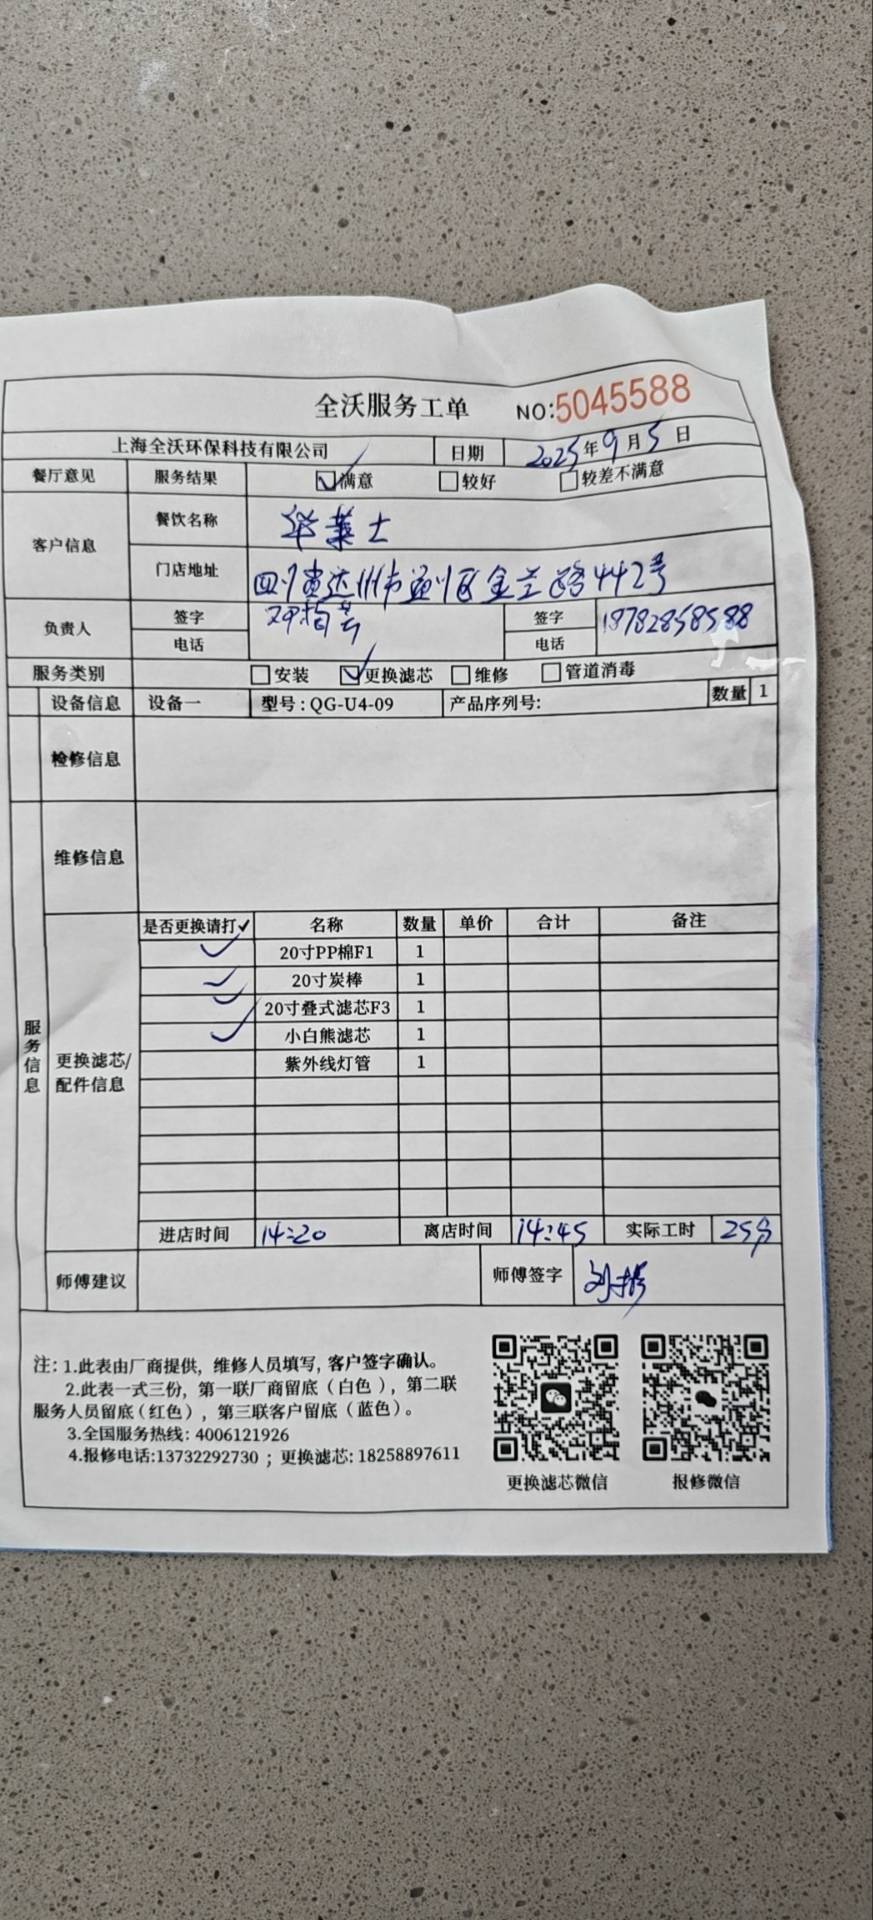 全沃服务工单 NO:5045588
上海全沃环保科技有限公司 日期 2025年9月5日
餐厅意见 服务结果 满意 较好 较差不满意
客户信息 餐饮名称 华莱士
门店地址 四川省达州市通川区金兰路442号
负责人 签字 签字 18782858588
电话 电话
服务类别 安装 更换滤芯 维修 管道消毒
设备信息 设备一 型号:QG-U4-09 产品序列号: 数量 1
检修信息
维修信息
服务信息
更换滤芯/配件信息
是否更换请打✓ 名称 数量 单价 合计 备注
✓ 20寸PP棉F1 1
✓ 20寸炭棒 1
✓ 20寸叠式滤芯F3 1
✓ 小白熊滤芯 1
紫外线灯管 1
进店时间 14:20 离店时间 14:45 实际工时 25分
师傅建议 师傅签字
注:1.此表由厂商提供,维修人员填写,客户签字确认。
2.此表一式三份,第一联厂商留底(白色),第二联
服务人员留底(红色),第三联客户留底(蓝色)。
3.全国服务热线:4006121926
4.报修电话:13732292730;更换滤芯:18258897611
更换滤芯微信 报修微信